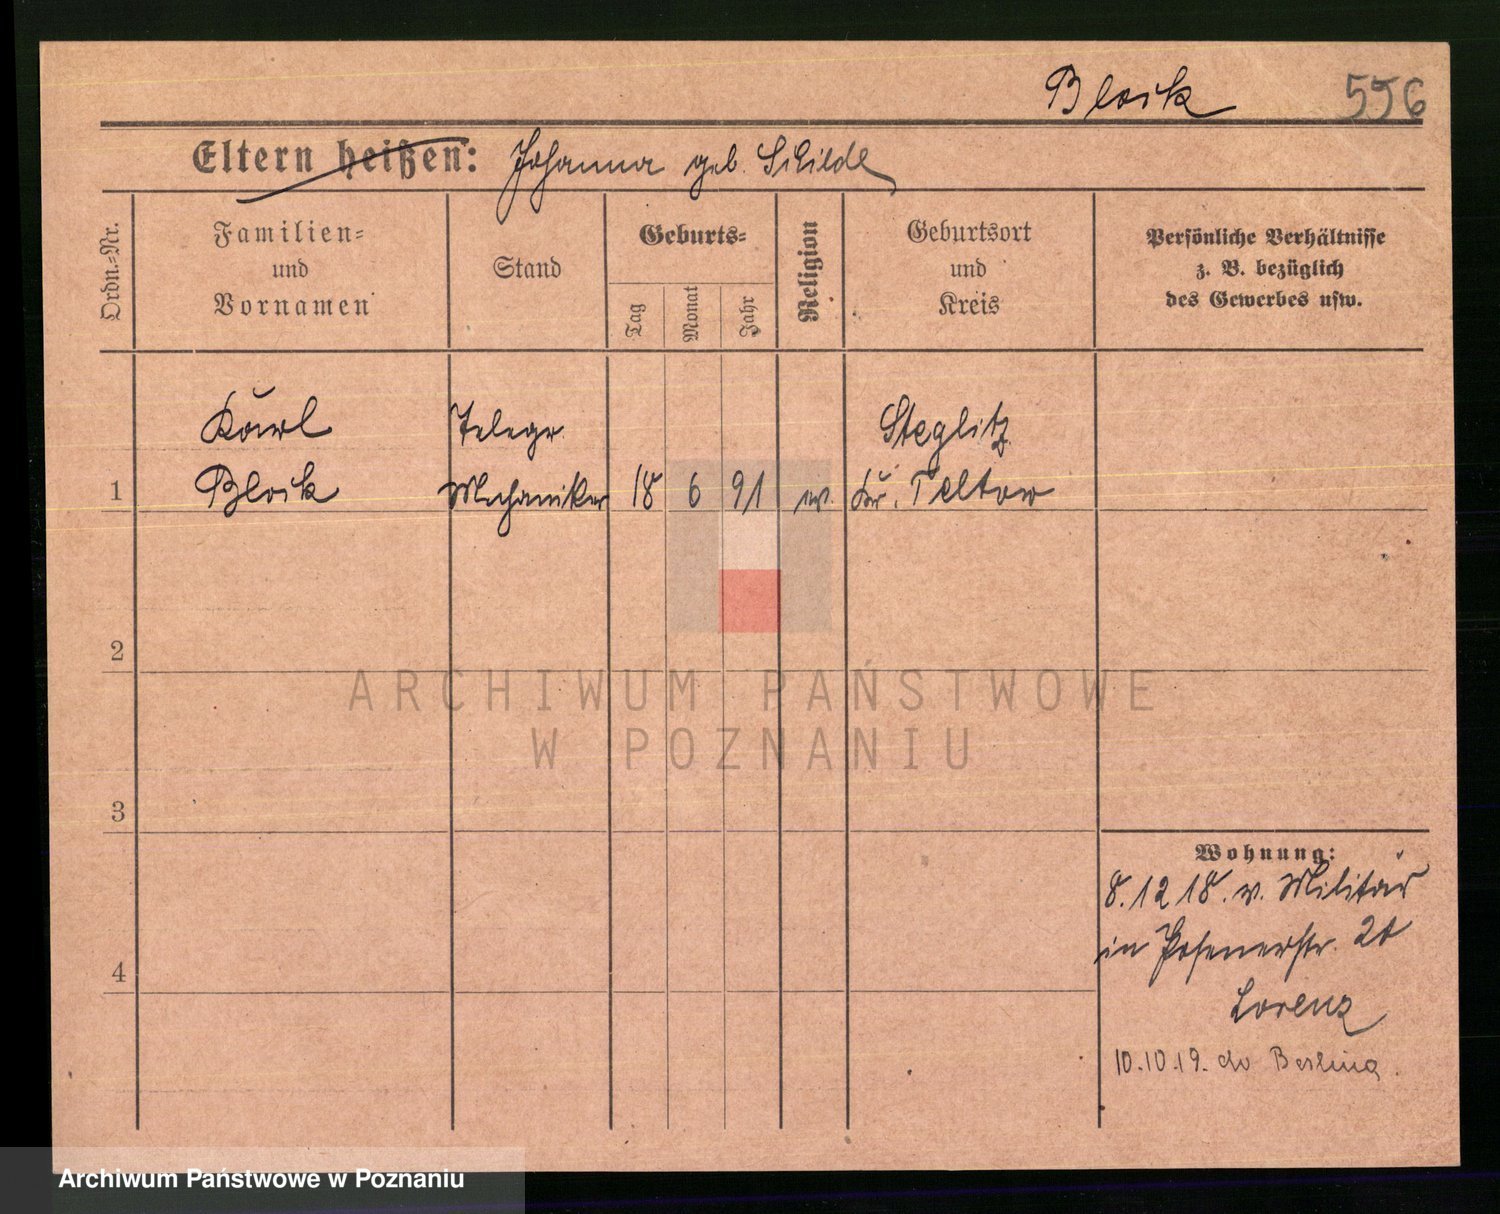 Block 556
Eltern heißen: Johanna geb. Schilde
Ordn.=Nr.
Familien=
und
Vornamen
Stand
Geburts=
Tag
Monat
Jahr
Religion
Geburtsort
und
Kreis
Persönliche Verhältnisse
z. B. bezüglich
des Gewerbes usw.
Karl Telegr. Steglitz
1 Block Mechaniker 18 6 91 ev. Kr. Teltow
2
3
4
Wohnung:
8. 12 18. v. Militär
in Posenerstr. 20
Lorenz
10.10.19. do Berlina.
ARCHIWUM PAŃSTWOWE
W POZNANIU
Archiwum Państwowe w Poznaniu